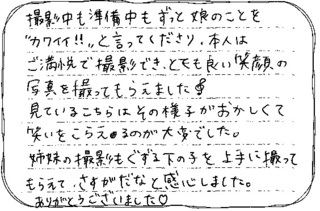 撮影中も準備中もずっと娘のことを
"カワイイ!!"と言ってくださり、本人は
ご満悦で撮影でき、とても良い笑顔の
写真を撮ってもらえました
見ているこちらはその様子がおかしくて
笑いをこらえるのが大変でした。
姉妹の撮影もぐずる下の子を上手に撮って
もらえて、さすがだなと感心しました。
ありがとうございました♡